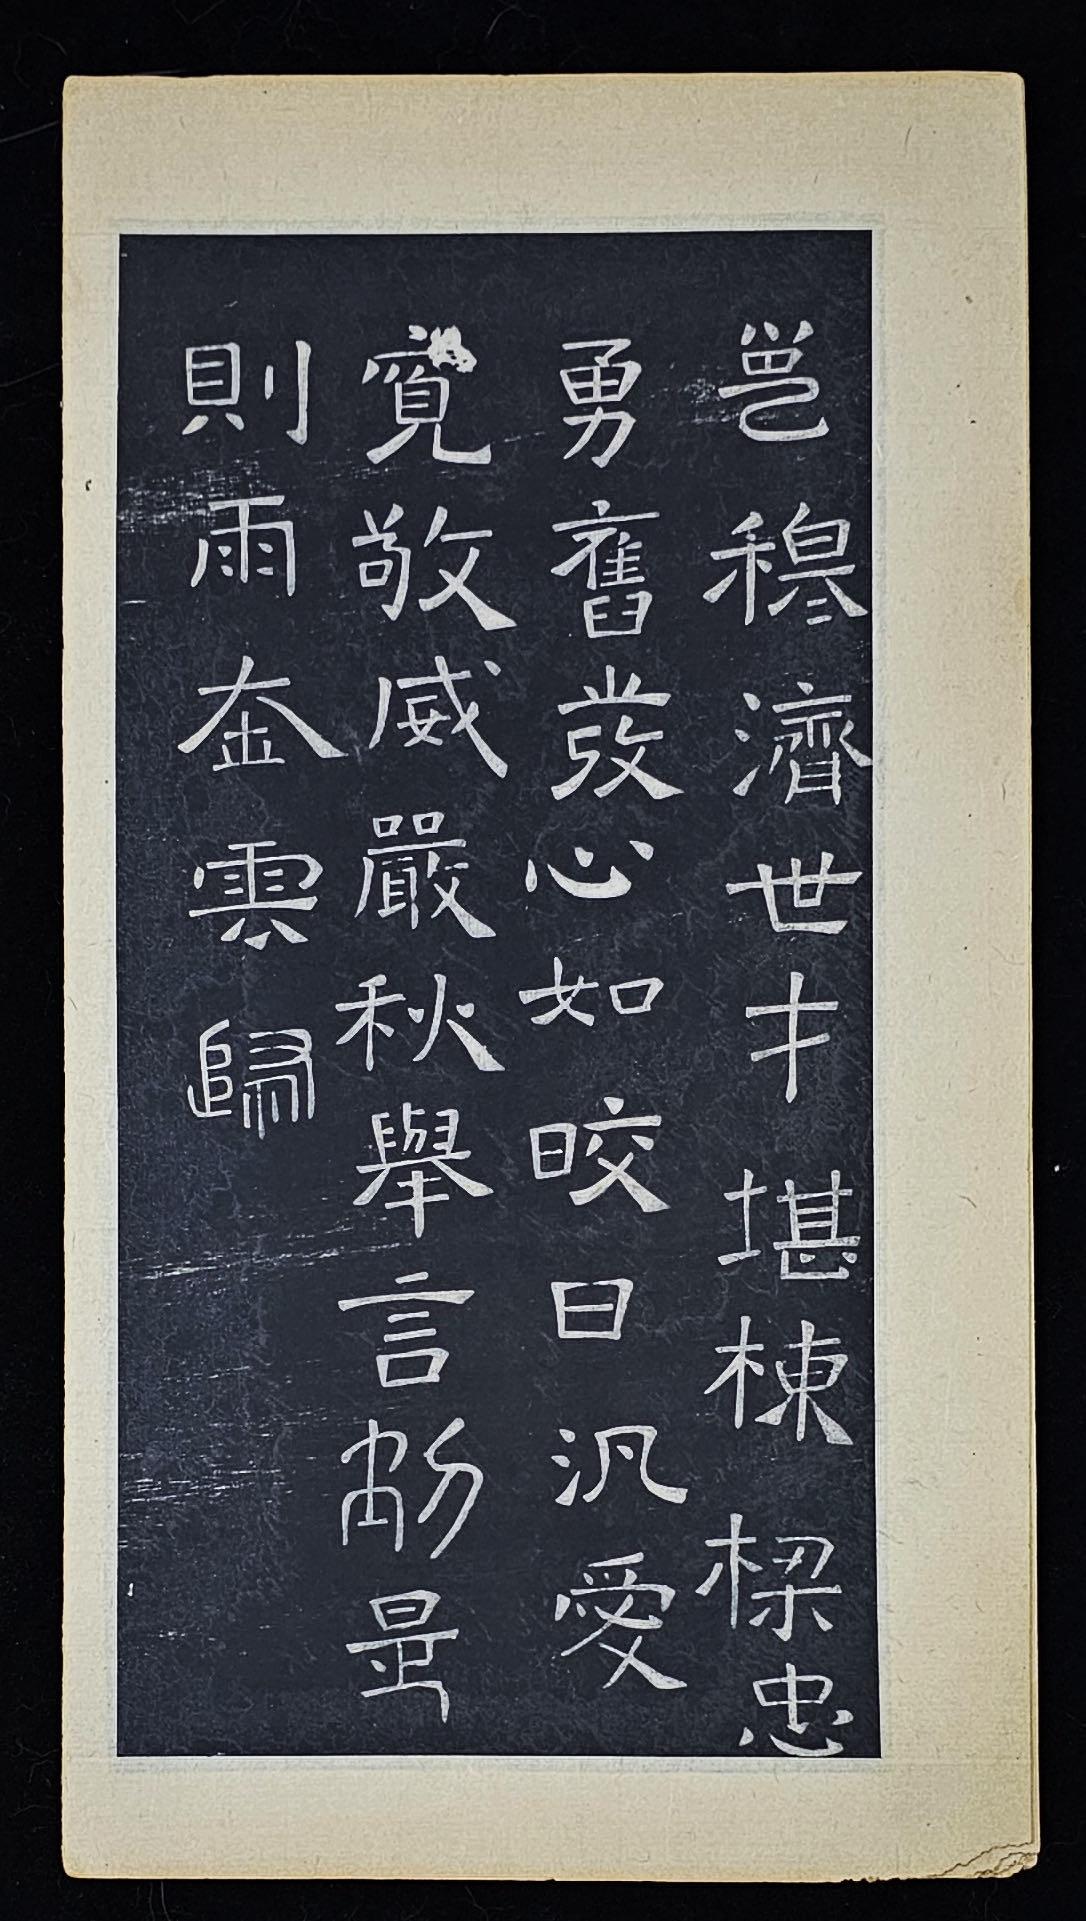 邕穆濟世才堪棟樑忠
勇奮發心如皎日汎愛
寬敬威嚴秋舉言制是
則雨金雲歸